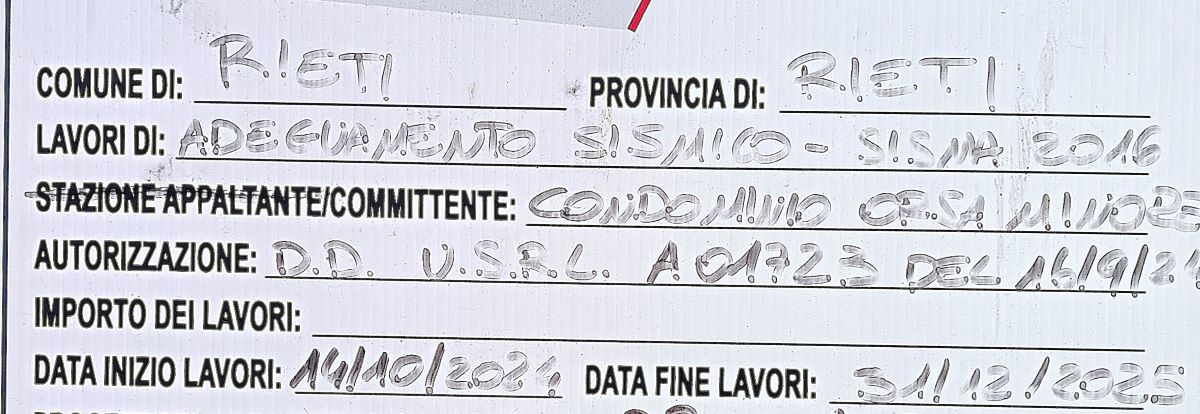 COMUNE DI: RIETI PROVINCIA DI: RIETI
LAVORI DI: ADEGUAMENTO SISMICO - SISMA 2016
STAZIONE APPALTANTE/COMMITTENTE: CONDOMINIO ORSA MINORE
AUTORIZZAZIONE: D.D. U.S.R.L. A01723 DEL 16/9/24
IMPORTO DEI LAVORI:
DATA INIZIO LAVORI: 14/10/2024 DATA FINE LAVORI: 31/12/2025